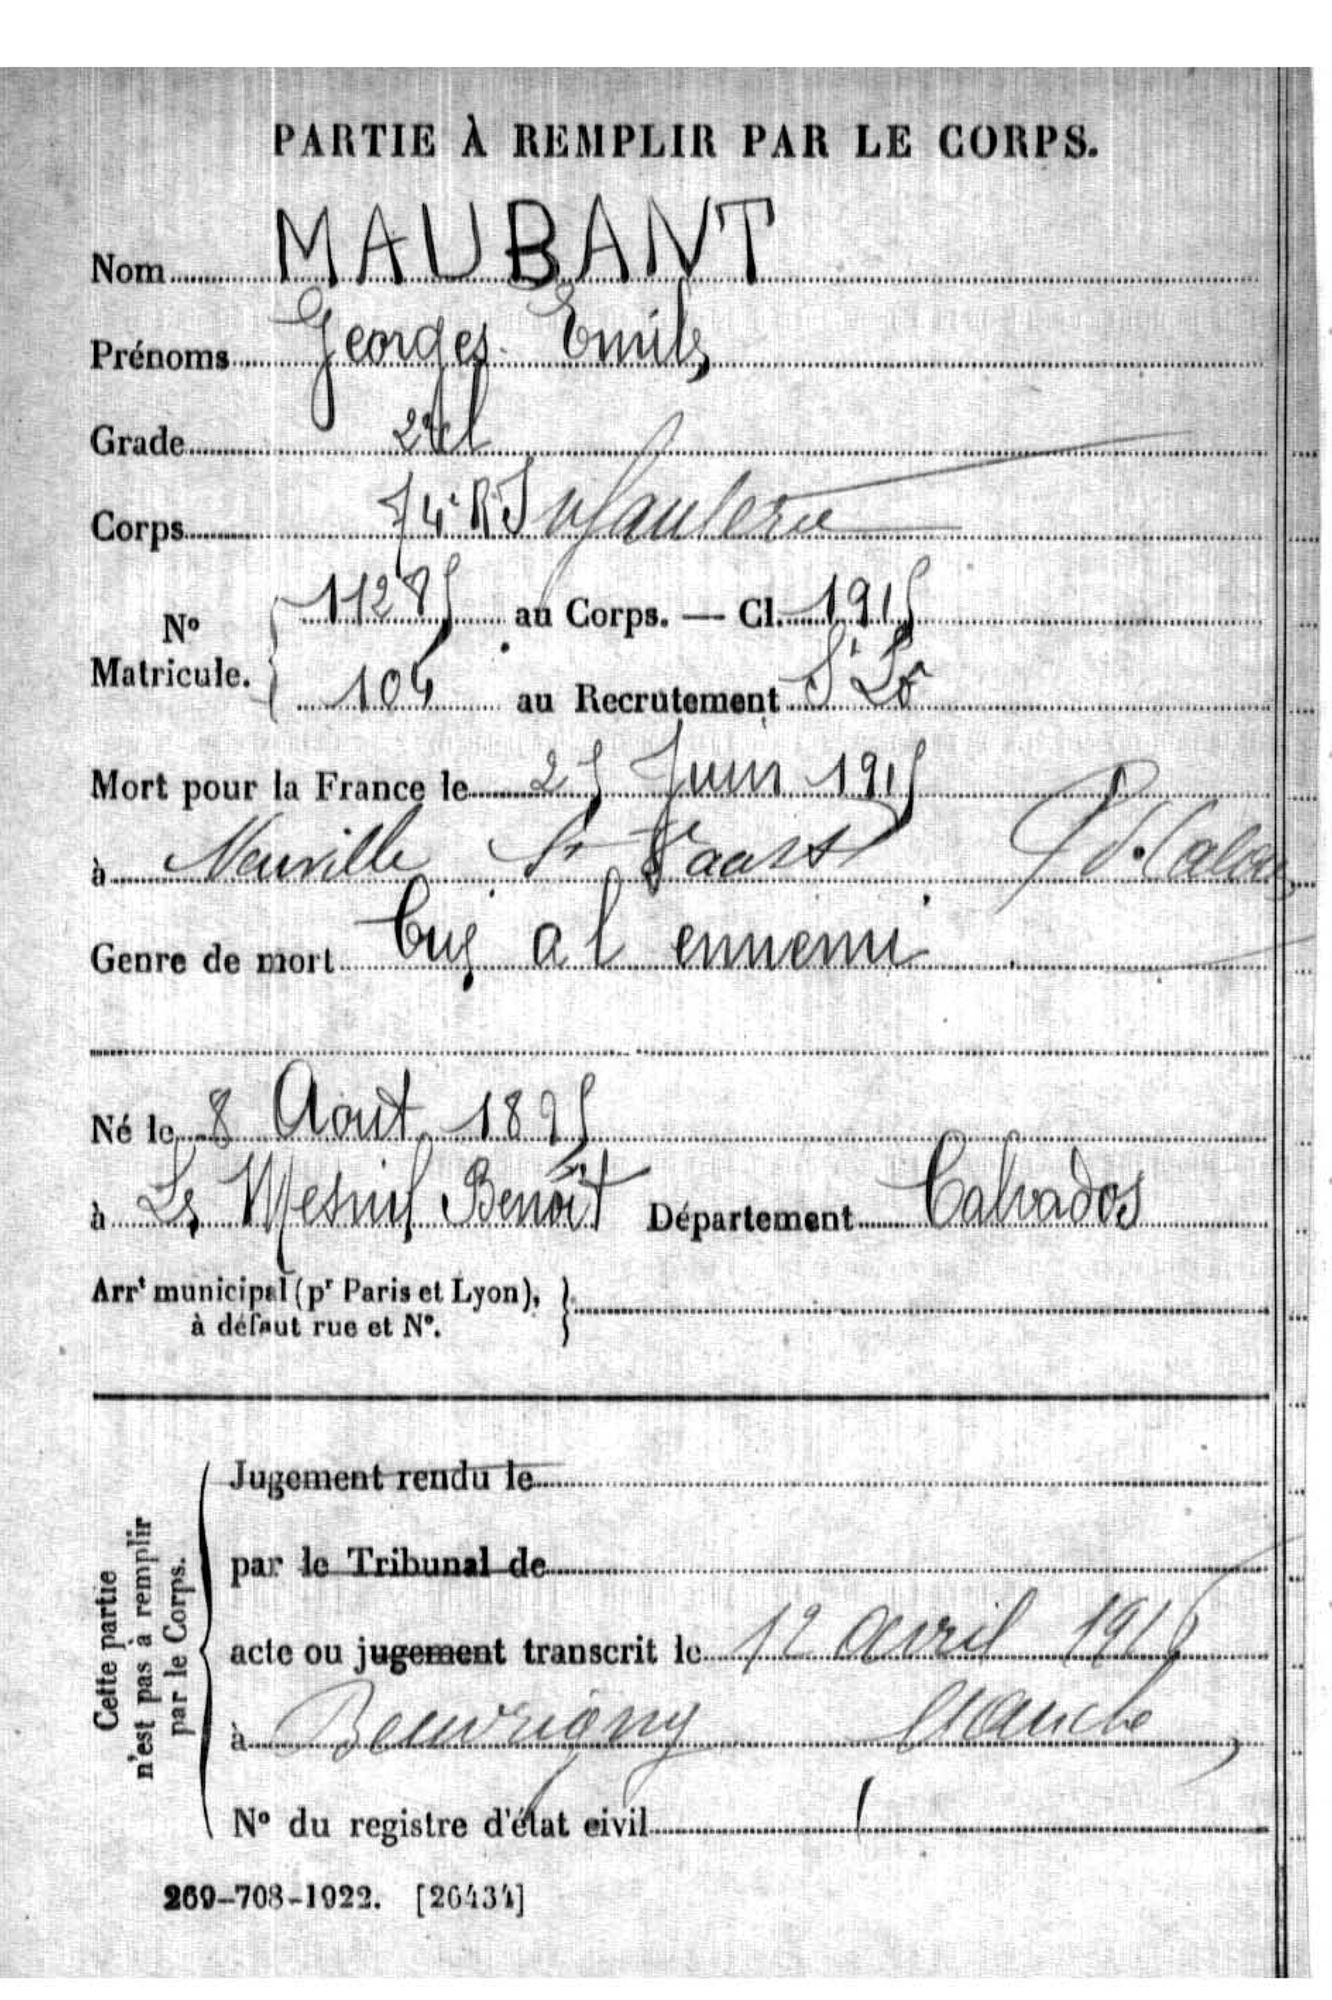 PARTIE À REMPLIR PAR LE CORPS.
Nom MAUBANT
Prénoms Georges Emile
Grade 2e cl
Corps 74e R Infanterie
No Matricule. 11285 au Corps. — Cl. 1915
104 au Recrutement St Lô
Mort pour la France le 25 Juin 1915
à Neuville St Vaast P. d. Calais
Genre de mort Tué a l ennemi
Né le 8 Aout 1895
à Le Mesnil Benoît Département Calvados
Arrt municipal (pr Paris et Lyon),
à défaut rue et No.
Cette partie n'est pas à remplir par le Corps.
Jugement rendu le
par le Tribunal de
acte ou jugement transcrit le 12 avril 1916
à Beuvrigny Manche
No du registre d'état civil
269-708-1922. [26434]